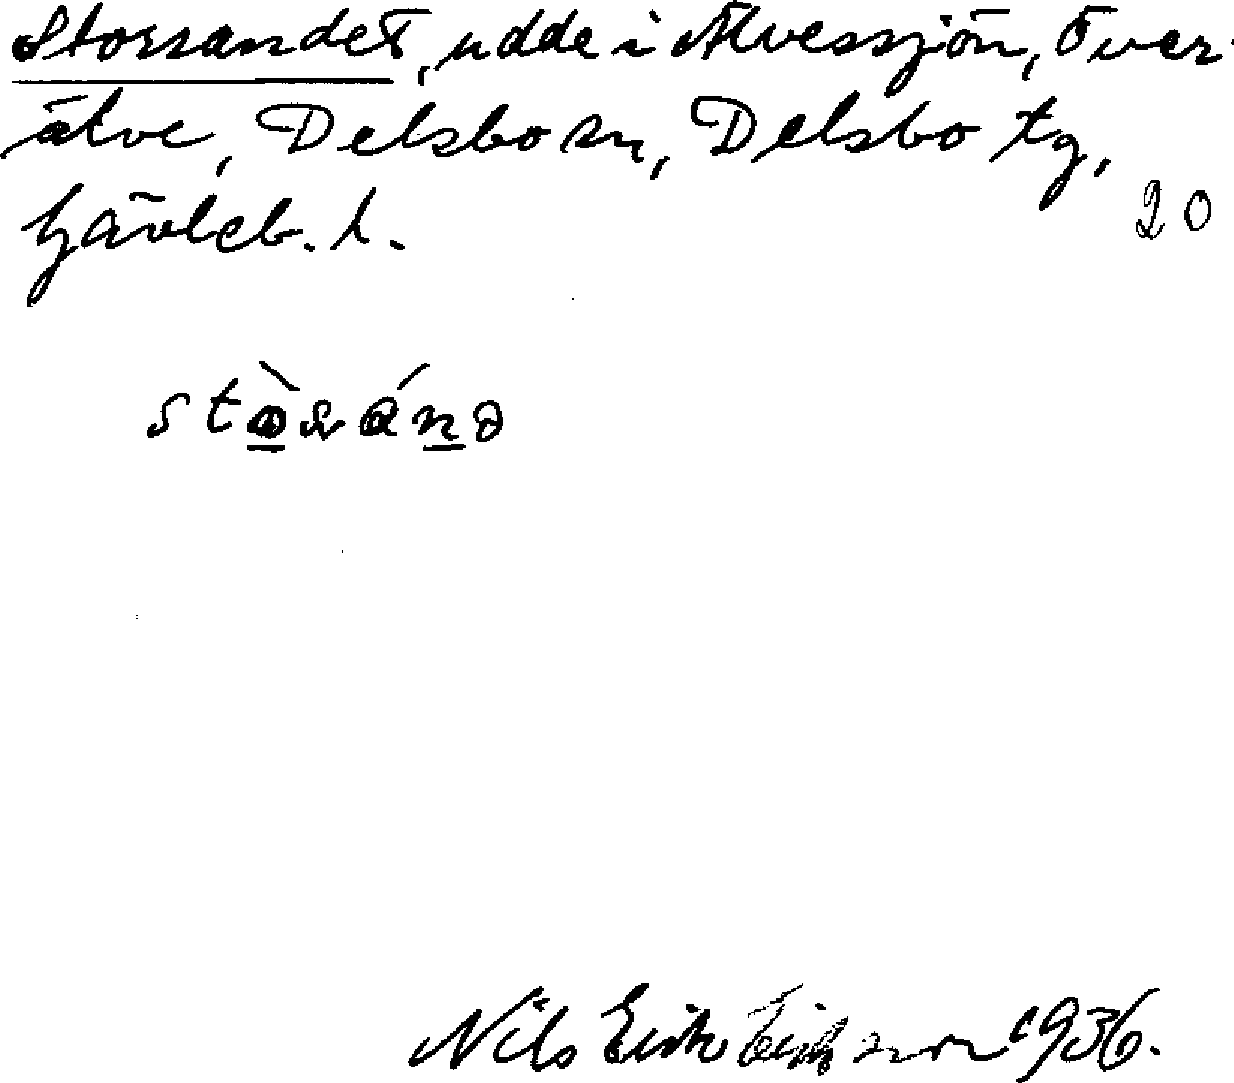 Storsandet, udde i Älvessjön, Över-
älve, Delsbo sn, Delsbo tg,
Gävleb. l.
20
Nils Erik Eriksson 1936.